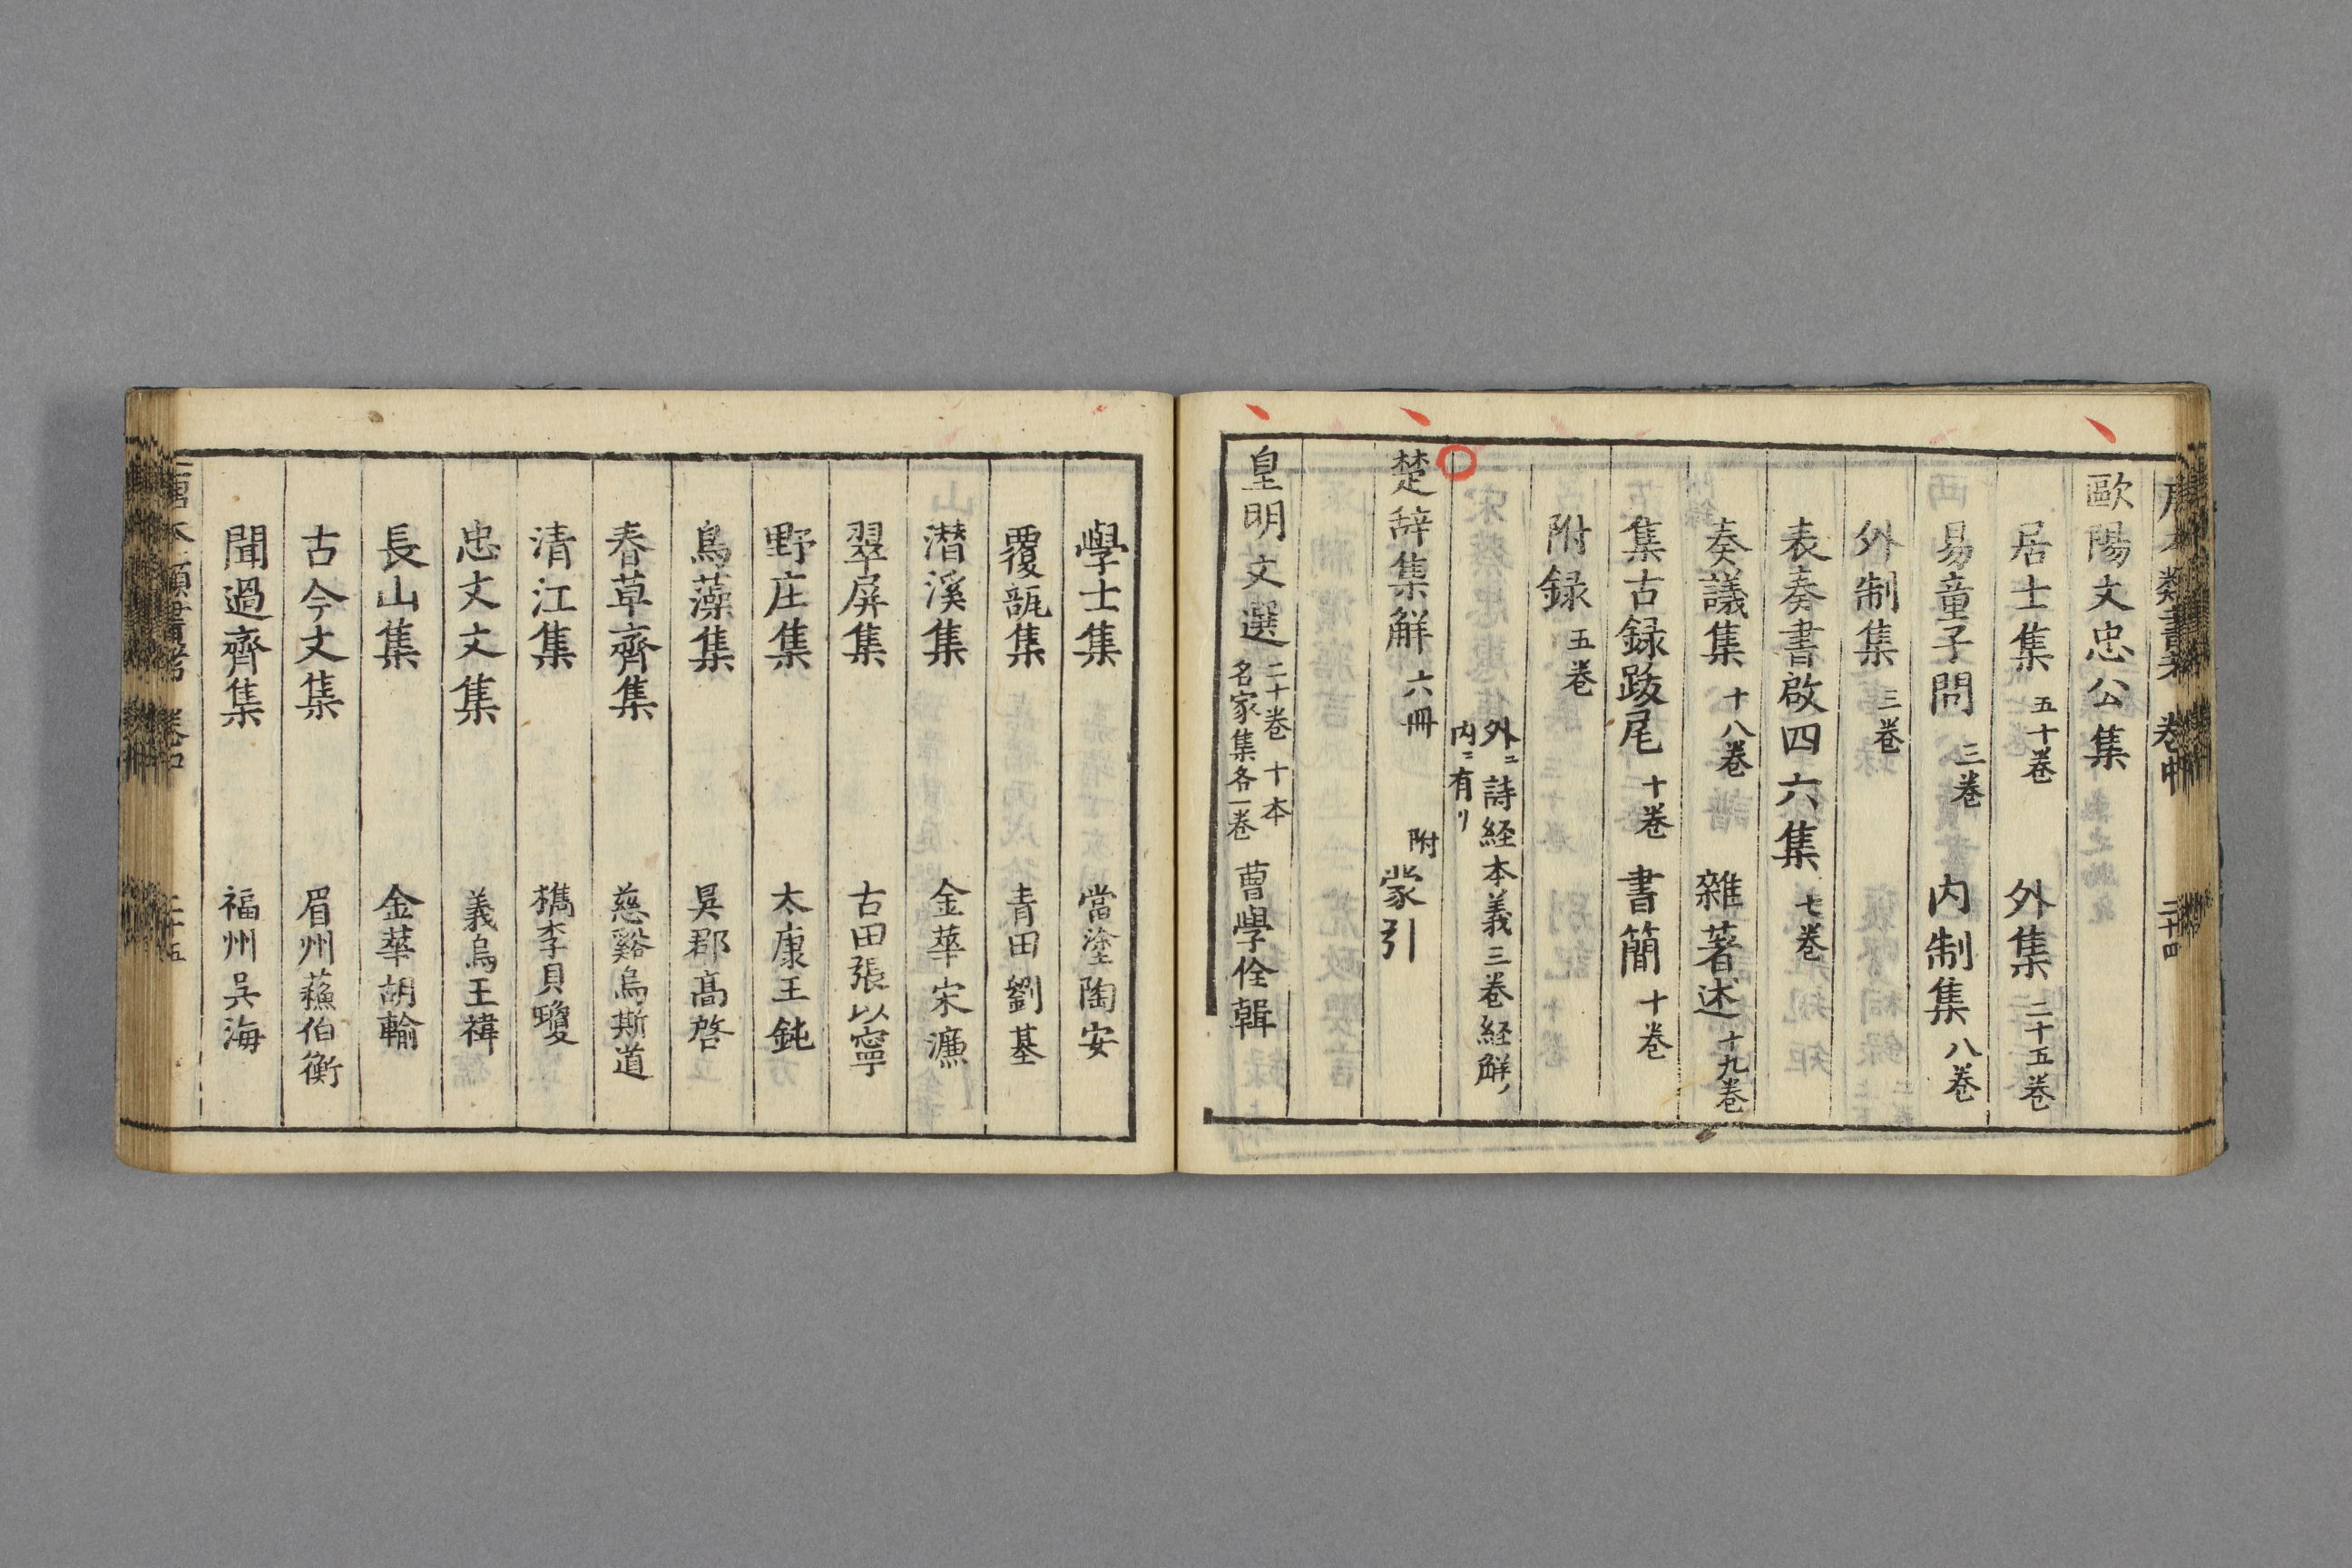 唐本類書考 卷中 二十四
歐陽文忠公集
居士集 五十卷 外集 二十五卷
易童子問 三卷 内制集 八卷
外制集 三卷
表奏書啟四六集 七卷
奏議集 十八卷 雜著述 十九卷
集古録跋尾 十卷 書簡 十卷
附録 五卷
外ニ詩経本義三卷経觧ノ
内ニ有リ
楚辞集觧 六冊 附 蒙引
皇明文選 二十卷 十本 名家集各一卷 曹學佺輯
學士集 當塗陶安
覆瓿集 青田劉基
潜溪集 金華宋濂
翠屏集 古田張以寧
野庄集 太康王鈍
鳥藻集 吳郡髙啓
春草齊集 慈谿烏斯道
清江集 檇李貝瓊
忠文文集 義烏王禕
長山集 金華胡翰
古今文集 眉州蘓伯衡
聞過齊集 福州吳海
唐本類書考 卷中 二十五